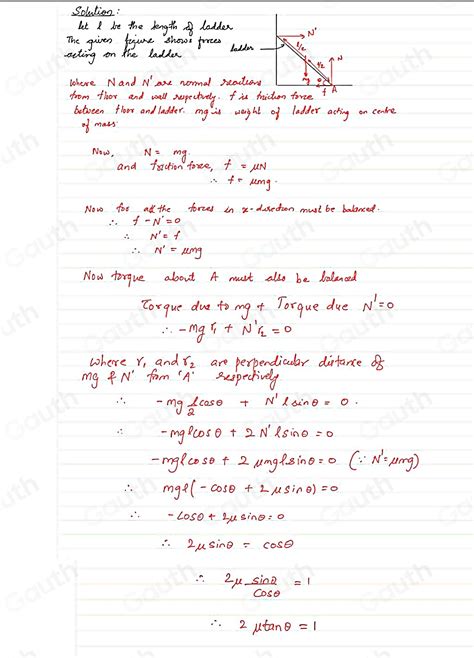 Solution:
let l be the length of ladder
The given figure shows forces
acting on the ladder
ladder
N'
l/2
l/2
N
mg
θ
f
A
Where N and N' are normal reactions
from floor and wall respectively. f is friction force
between floor and ladder. mg is weight of ladder acting on centre
of mass
Now, N = mg
and friction force, f = μN
∴ f = μmg.
Now for all the forces in x-direction must be balanced.
∴ f - N' = 0
∴ N' = f
∴ N' = μmg
Now torque about A must also be balanced
Torque due to mg + Torque due N' = 0
∴ -mg r₁ + N' r₂ = 0
Where r₁ and r₂ are perpendicular distance of
mg & N' from 'A' respectively
∴ -mg l/2 cosθ + N' l sinθ = 0.
∴ -mgl cosθ + 2 N' l sinθ = 0
-mgl cosθ + 2 μmgl sinθ = 0 (∵ N' = μmg)
∴ mgl(-cosθ + 2μ sinθ) = 0
∴ -cosθ + 2μ sinθ = 0
∴ 2μ sinθ = cosθ
∴ 2μ sinθ/cosθ = 1
∴ 2 μtanθ = 1
Gauth